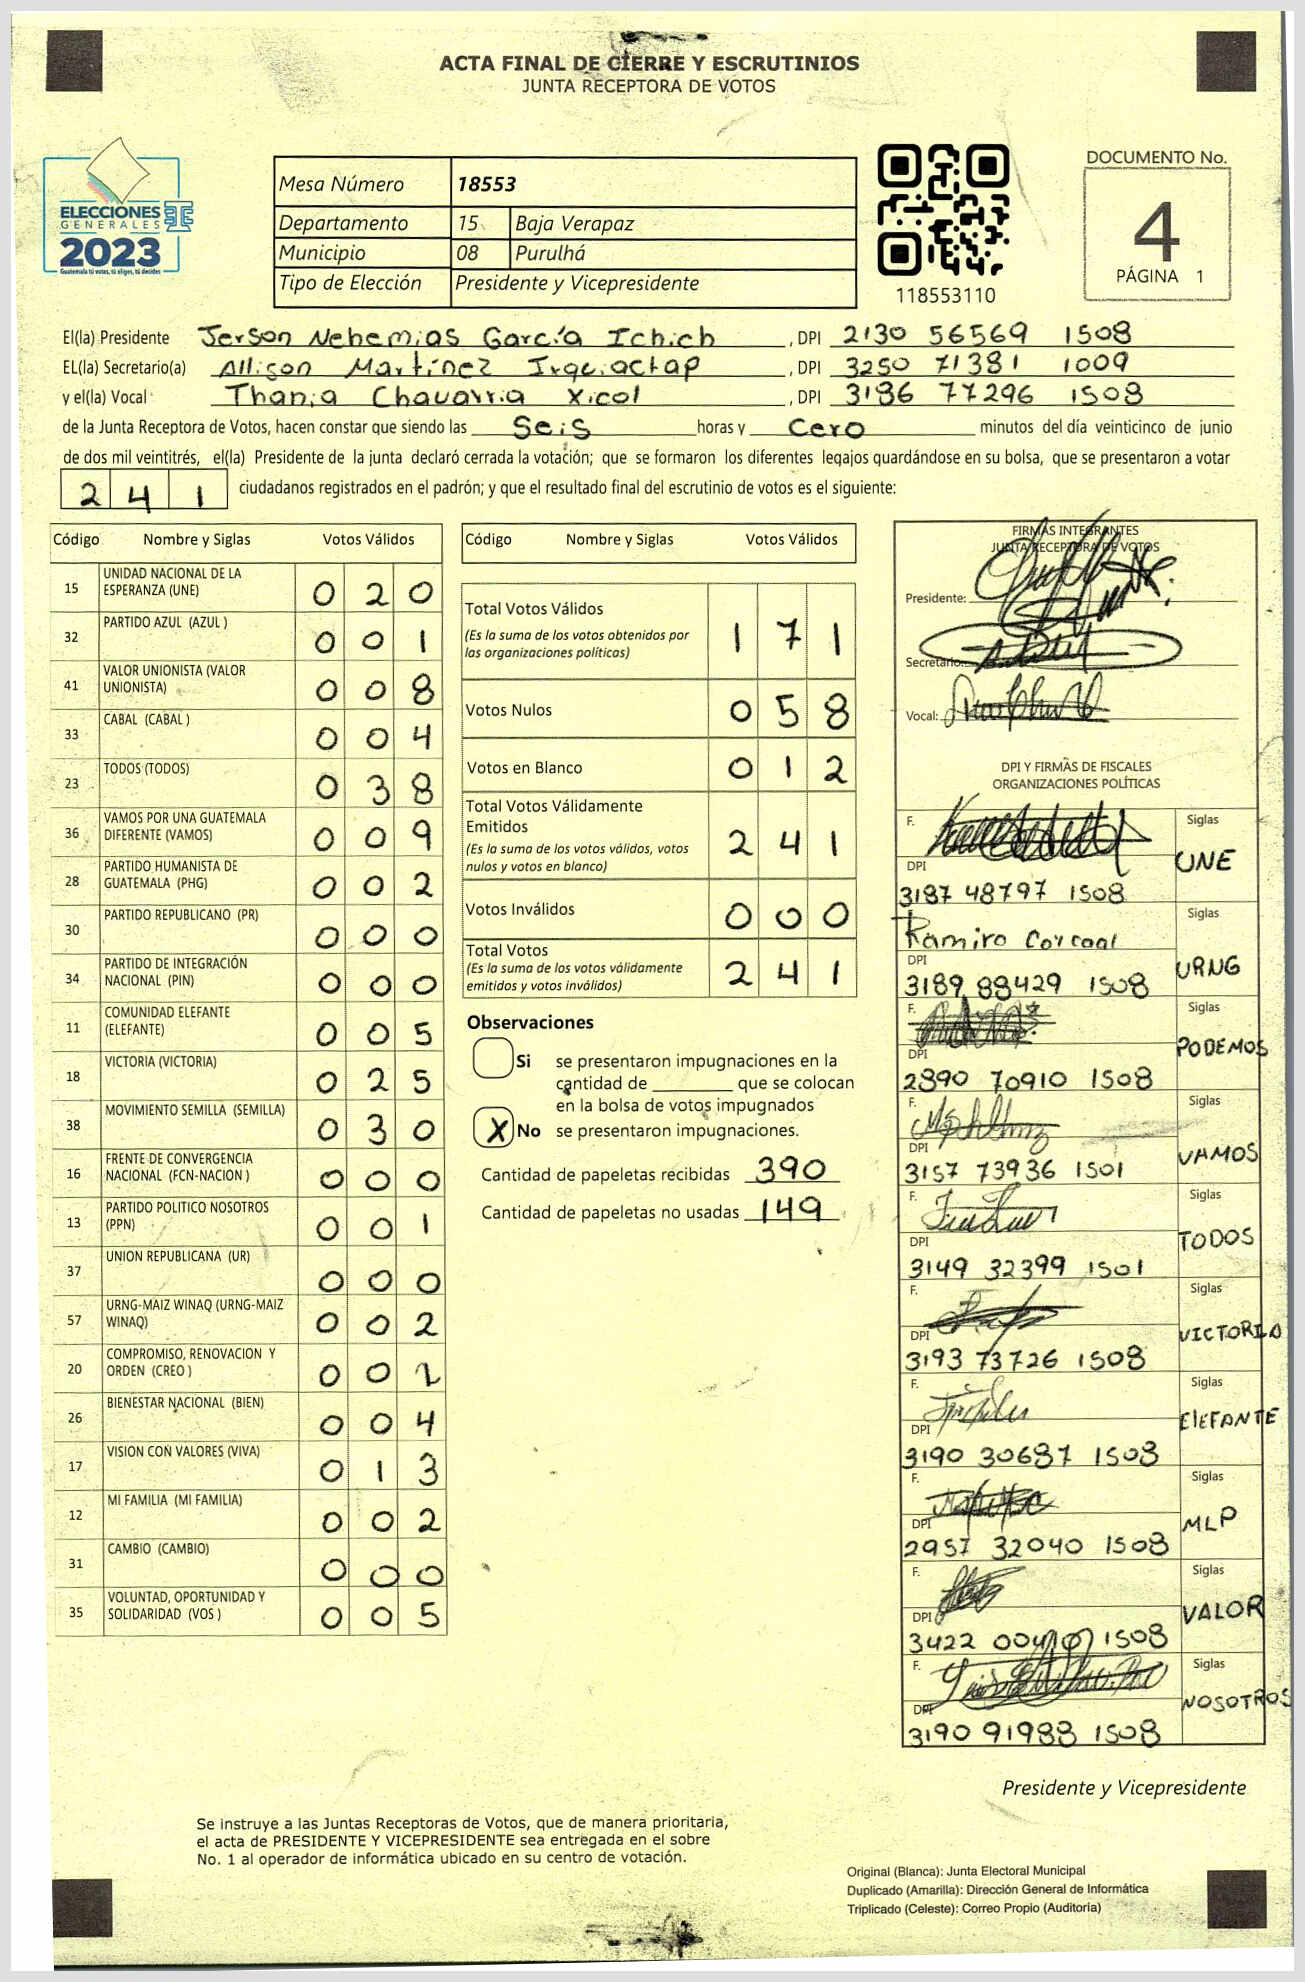 ACTA FINAL DE CIERRE Y ESCRUTINIOS
JUNTA RECEPTORA DE VOTOS
ELECCIONES
GENERALES
2023
Guatemala tú votas, tú eliges, tú decides
Mesa Número 18553
Departamento 15 Baja Verapaz
Municipio 08 Purulhá
Tipo de Elección Presidente y Vicepresidente
118553110
DOCUMENTO No.
4
PÁGINA 1
El(la) Presidente Jerson Nehemias García Ichich , DPI 2130 56569 1508
EL(la) Secretario(a) Allison Martínez , DPI 3250 71381 1009
y el(la) Vocal Thania Chavarria Xicol , DPI 3186 77296 1508
de la Junta Receptora de Votos, hacen constar que siendo las Seis horas y Cero minutos del día veinticinco de junio
de dos mil veintitrés, el(la) Presidente de la junta declaró cerrada la votación; que se formaron los diferentes legajos guardándose en su bolsa, que se presentaron a votar
241 ciudadanos registrados en el padrón; y que el resultado final del escrutinio de votos es el siguiente:
Código Nombre y Siglas Votos Válidos
15 UNIDAD NACIONAL DE LA ESPERANZA (UNE) 020
32 PARTIDO AZUL (AZUL ) 001
41 VALOR UNIONISTA (VALOR UNIONISTA) 008
33 CABAL (CABAL ) 004
23 TODOS (TODOS) 038
36 VAMOS POR UNA GUATEMALA DIFERENTE (VAMOS) 009
28 PARTIDO HUMANISTA DE GUATEMALA (PHG) 002
30 PARTIDO REPUBLICANO (PR) 000
34 PARTIDO DE INTEGRACIÓN NACIONAL (PIN) 000
11 COMUNIDAD ELEFANTE (ELEFANTE) 005
18 VICTORIA (VICTORIA) 025
38 MOVIMIENTO SEMILLA (SEMILLA) 030
16 FRENTE DE CONVERGENCIA NACIONAL (FCN-NACION ) 000
13 PARTIDO POLITICO NOSOTROS (PPN) 001
37 UNION REPUBLICANA (UR) 000
57 URNG-MAIZ WINAQ (URNG-MAIZ WINAQ) 002
20 COMPROMISO, RENOVACION Y ORDEN (CREO ) 002
26 BIENESTAR NACIONAL (BIEN) 004
17 VISION CON VALORES (VIVA) 013
12 MI FAMILIA (MI FAMILIA) 002
31 CAMBIO (CAMBIO) 000
35 VOLUNTAD, OPORTUNIDAD Y SOLIDARIDAD (VOS ) 005
Código Nombre y Siglas Votos Válidos
Total Votos Válidos 171
(Es la suma de los votos obtenidos por
las organizaciones políticas)
Votos Nulos 058
Votos en Blanco 012
Total Votos Válidamente
Emitidos 241
(Es la suma de los votos válidos, votos
nulos y votos en blanco)
Votos Inválidos 000
Total Votos 241
(Es la suma de los votos válidamente
emitidos y votos inválidos)
Observaciones
Si se presentaron impugnaciones en la
cantidad de ________ que se colocan
en la bolsa de votos impugnados
X No se presentaron impugnaciones.
Cantidad de papeletas recibidas 390
Cantidad de papeletas no usadas 149
FIRMAS INTEGRANTES
JUNTA RECEPTORA DE VOTOS
Presidente:
Secretario:
Vocal:
DPI Y FIRMAS DE FISCALES
ORGANIZACIONES POLÍTICAS
F. Siglas
DPI UNE
3187 48797 1508
Ramiro Siglas
DPI URNG
3189 88429 1508
F. Siglas
DPI PODEMOS
2890 70910 1508
F. Siglas
DPI VAMOS
3157 73936 1501
F. Siglas
DPI TODOS
3149 32399 1501
F. Siglas
DPI VICTORIA
3193 73726 1508
F. Siglas
DPI ELEFANTE
3190 30687 1508
F. Siglas
DPI MLP
2957 32040 1508
F. Siglas
DPI VALOR
3422 1508
F. Siglas
DPI NOSOTROS
3190 91988 1508
Presidente y Vicepresidente
Se instruye a las Juntas Receptoras de Votos, que de manera prioritaria,
el acta de PRESIDENTE Y VICEPRESIDENTE sea entregada en el sobre
No. 1 al operador de informática ubicado en su centro de votación.
Original (Blanca): Junta Electoral Municipal
Duplicado (Amarilla): Dirección General de Informática
Triplicado (Celeste): Correo Propio (Auditoría)